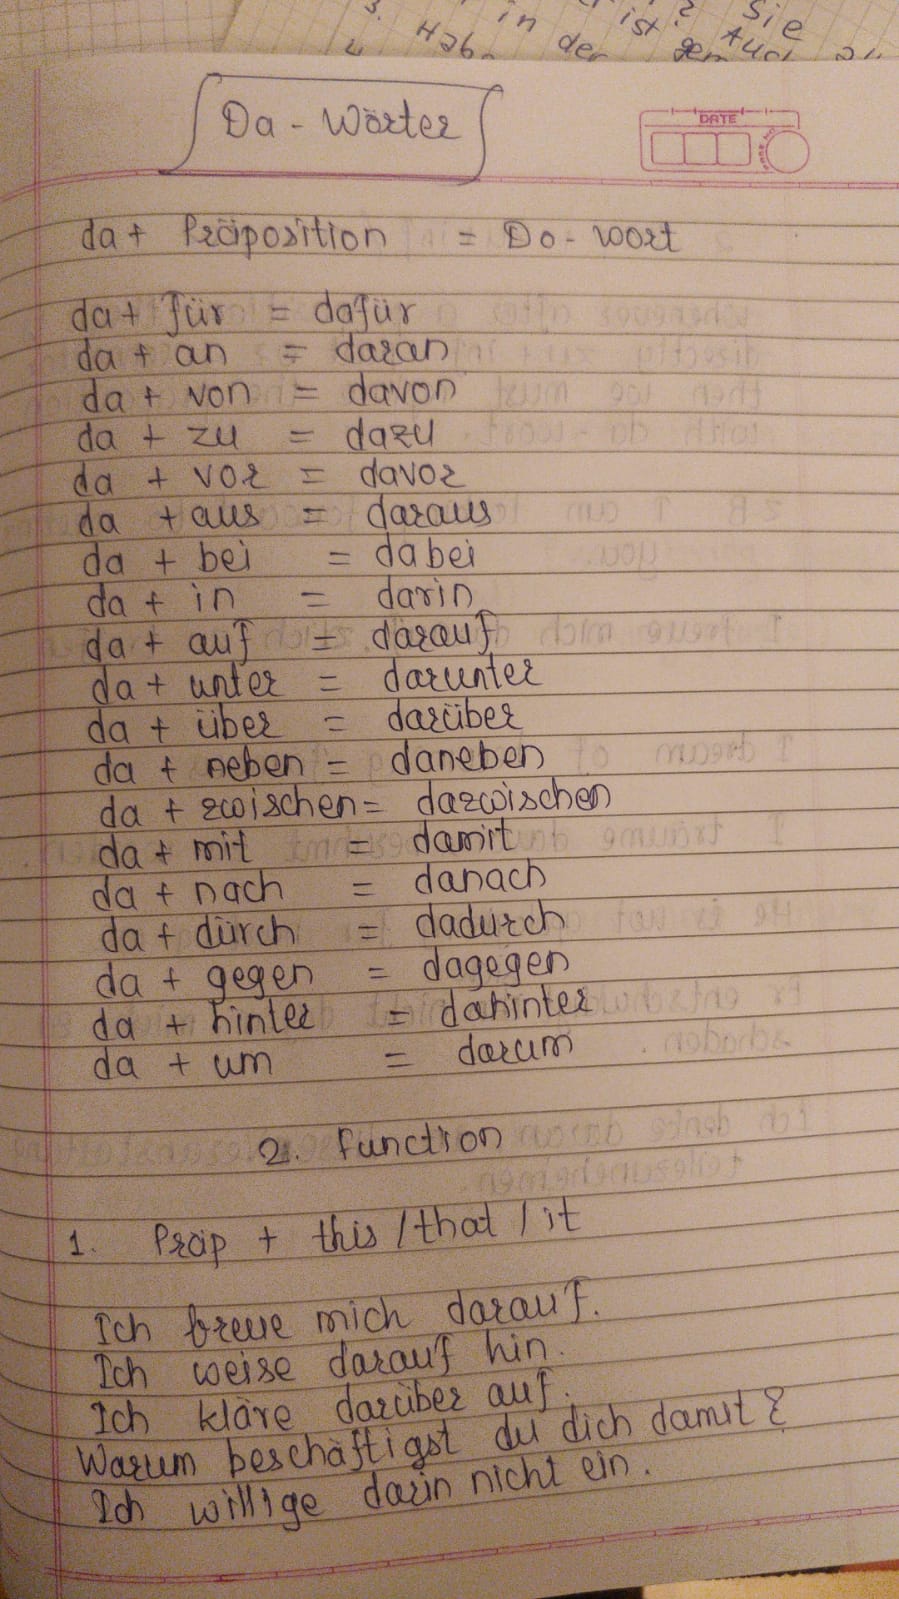 in ist ? Sie
Hab der gem Auch
Da - Wörter
DATE
da + Präposition = Da - Wort
da + für = dafür
da + an = daran
da + von = davon
da + zu = dazu
da + vor = davor
da + aus = daraus
da + bei = dabei
da + in = darin
da + auf = darauf
da + unter = darunter
da + über = darüber
da + neben = daneben
da + zwischen = dazwischen
da + mit = damit
da + nach = danach
da + dürch = dadurch
da + gegen = dagegen
da + hinter = dahinter
da + um = darum
2. Function
1. Präp + this / that / it
Ich freue mich darauf.
Ich weise darauf hin.
Ich kläre darüber auf.
Warum beschäftigst du dich damit?
Ich willige darin nicht ein.